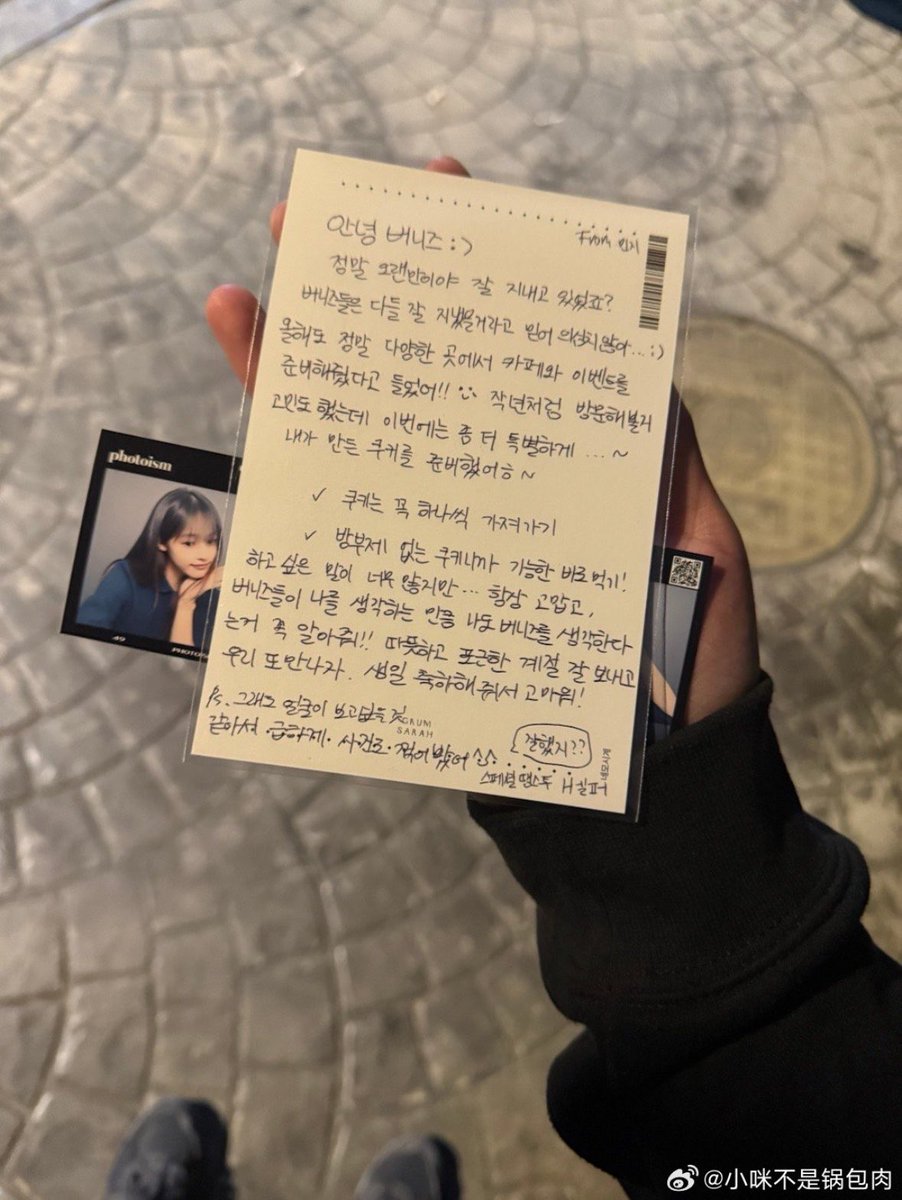 안녕 버니즈 : )
From 민지
정말 오랜만이야 잘 지내고 있었죠?
버니즈들은 다들 잘 지냈을거라고 믿어 의심치 않아... : )
올해도 정말 다양한 곳에서 카페와 이벤트를
준비해줬다고 들었어!! 작년처럼 방문해볼지
고민도 했는데 이번에는 좀 더 특별하게 ... ~
내가 만든 쿠키를 준비했어ㅎ ~
✓ 쿠키는 꼭 하나씩 가져가기
✓ 방부제 없는 쿠키니까 가능한 바로 먹기!
하고 싶은 말이 너무 많지만... 항상 고맙고,
버니즈들이 나를 생각하는 만큼 나도 버니즈를 생각한다
는거 꼭 알아줘!! 따뜻하고 포근한 계절 잘 보내고
우리 또 만나자. 생일 축하해줘서 고마워!
Ps. 그래도 얼굴이 보고싶을 것
같아서 · 급하게 · 사진도 · 찍어봤어
잘했지??
GRUM
SARAH
네모시계
스페셜 땡스투
photoism
49
PHOTOISM
@小咪不是锅包肉